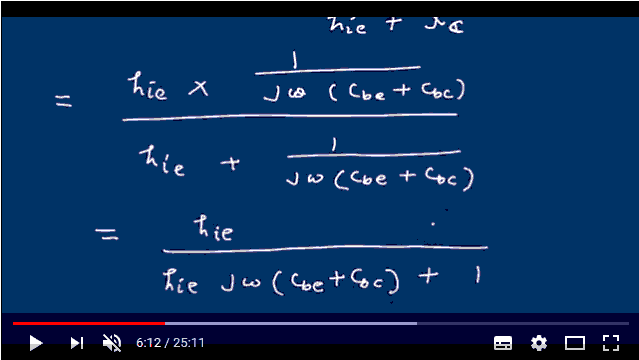 hie + xc
= hie × 1 / jω (Cbe + Cbc)
hie + 1 / jω (Cbe + Cbc)
= hie
hie jω (Cbe + Cbc) + 1
6:12 / 25:11